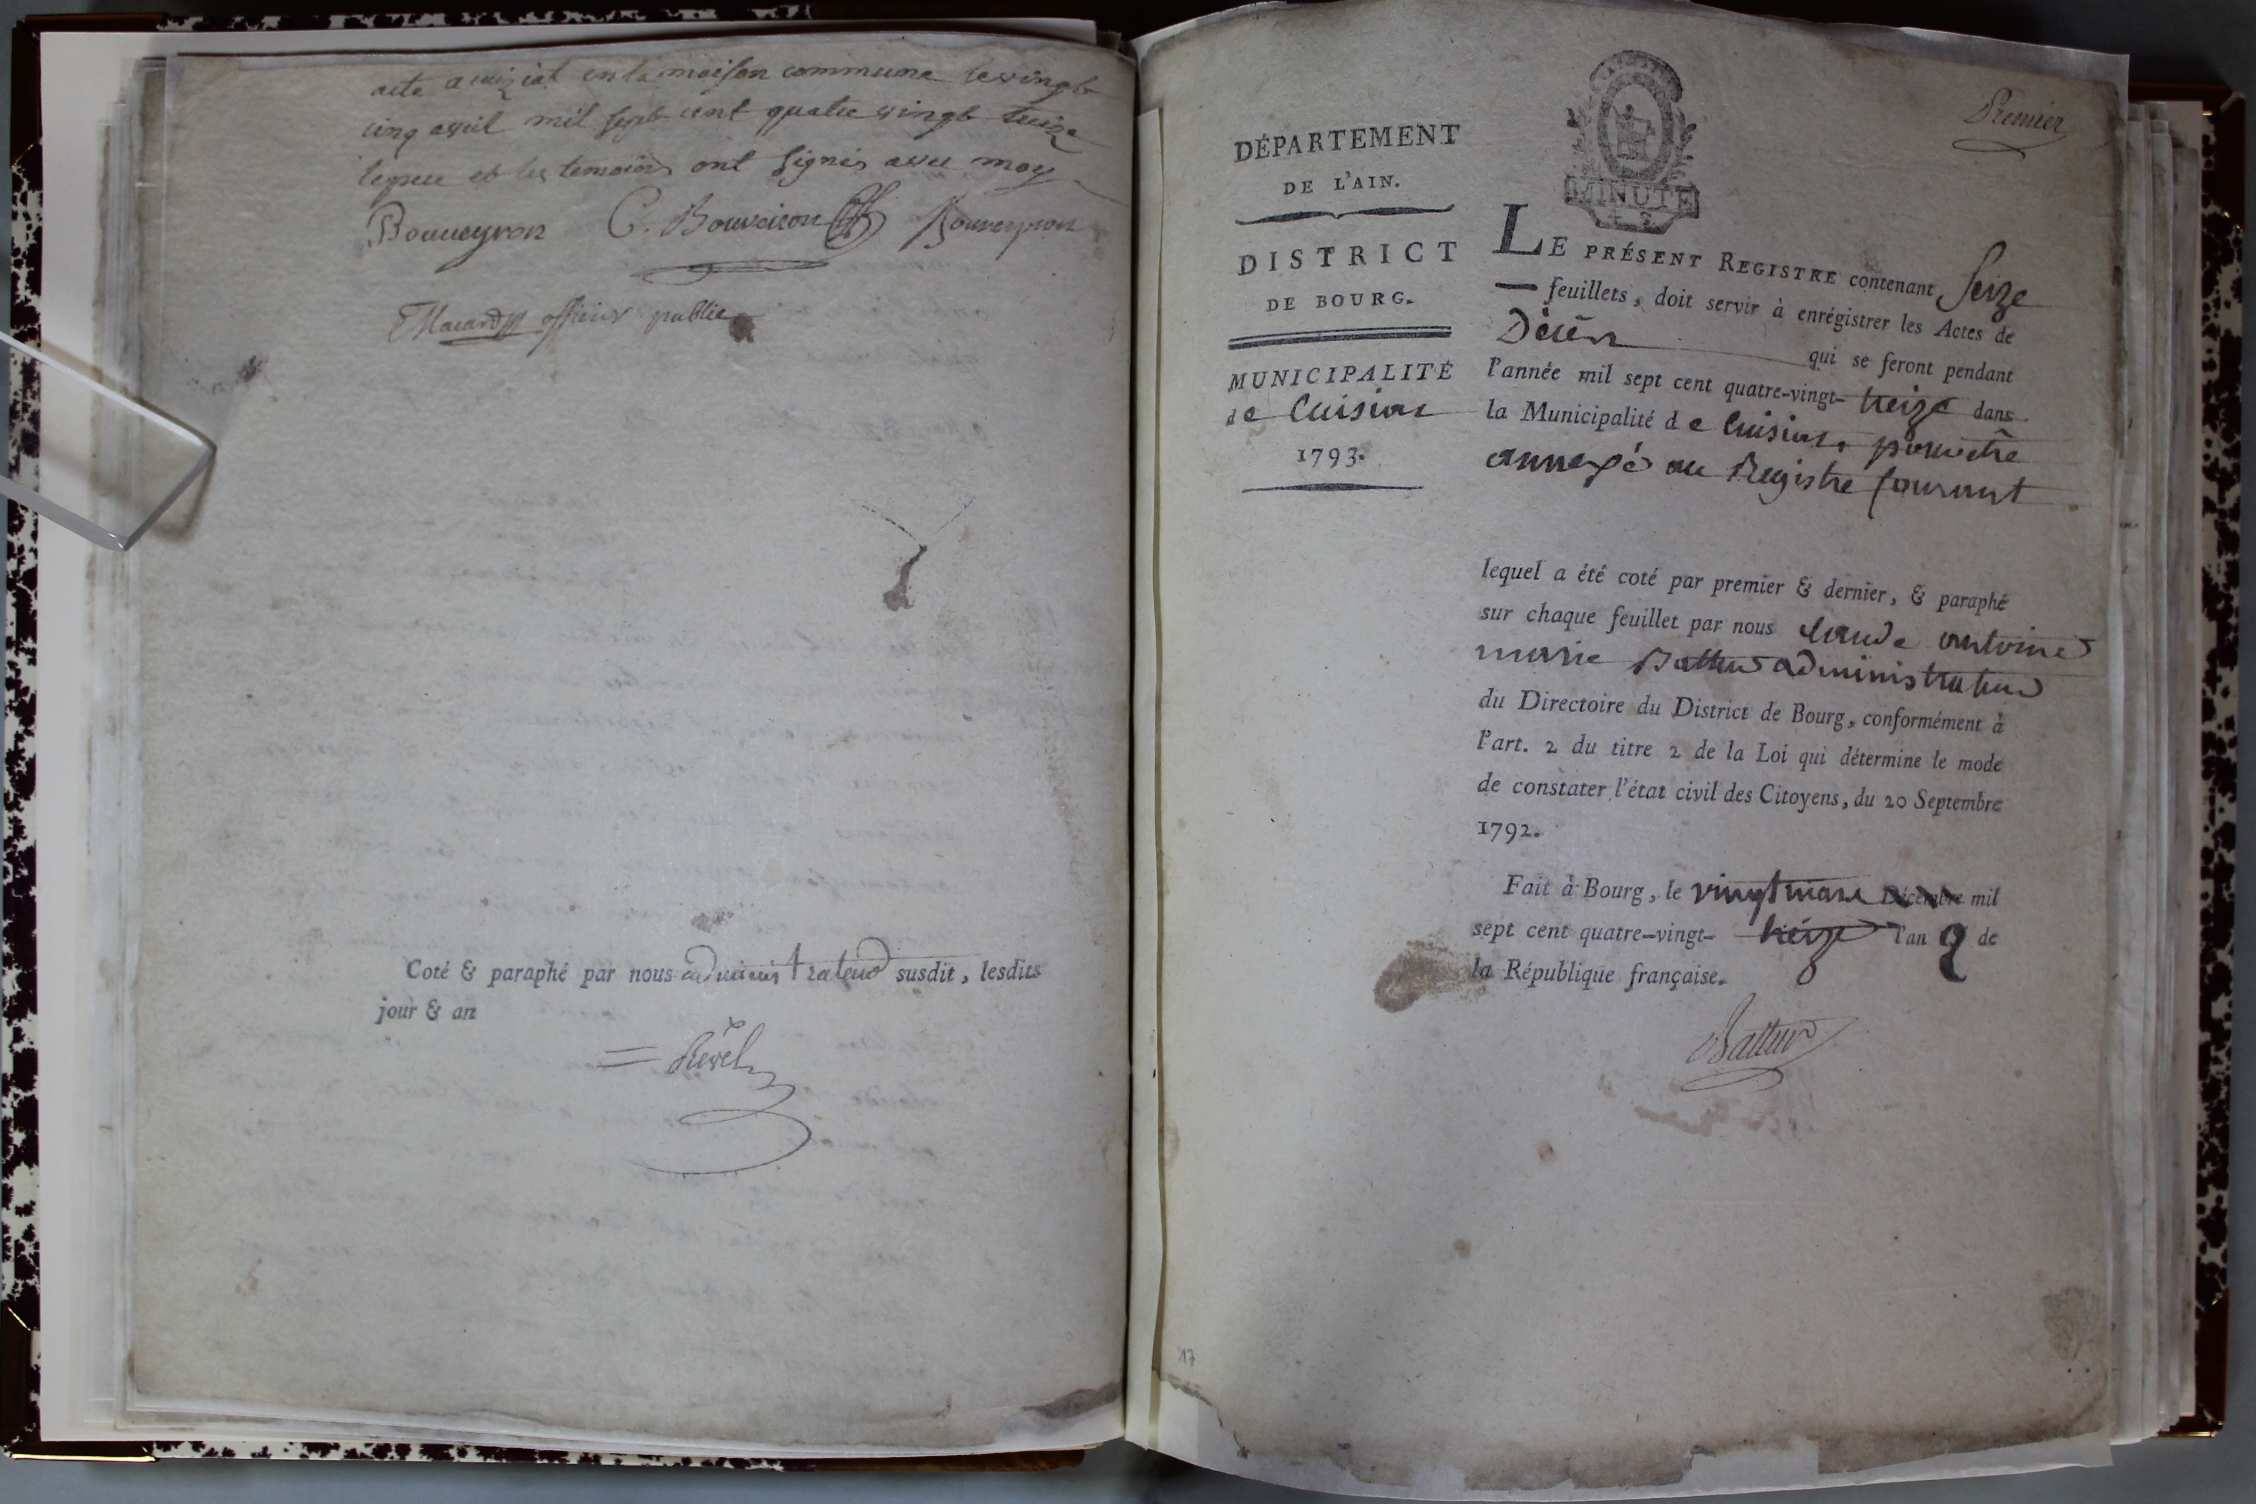 acte a cuiziat en la maison commune le vingt
cinq avril mil sept cent quatre vingt treize
le pere et les temoins ont signés avec moy
Bouveyron C. Bouveiron Bouveyron
Macard officier public
Coté & paraphé par nous administrateur susdit, lesdits
jour & an
Revel
Premier
DÉPARTEMENT
DE L'AIN.
DISTRICT
DE BOURG.
MUNICIPALITÉ
de Cuisiat
1793.
MINUTE
LE PRÉSENT REGISTRE contenant Seize
feuillets, doit servir à enrégistrer les Actes de
Décés qui se feront pendant
l'année mil sept cent quatre-vingt-treize dans
la Municipalité de Cuisiat, pour être
annexé au Registre Courant
lequel a été coté par premier & dernier, & paraphé
sur chaque feuillet par nous Claude antoine
marie Battur administrateur
du Directoire du District de Bourg, conformément à
l'art. 2 du titre 2 de la Loi qui détermine le mode
de constater l'état civil des Citoyens, du 20 Septembre
1792.
Fait à Bourg, le vingt mars Décembre mil
sept cent quatre-vingt-treize l'an 2 de
la République française.
Battur
17